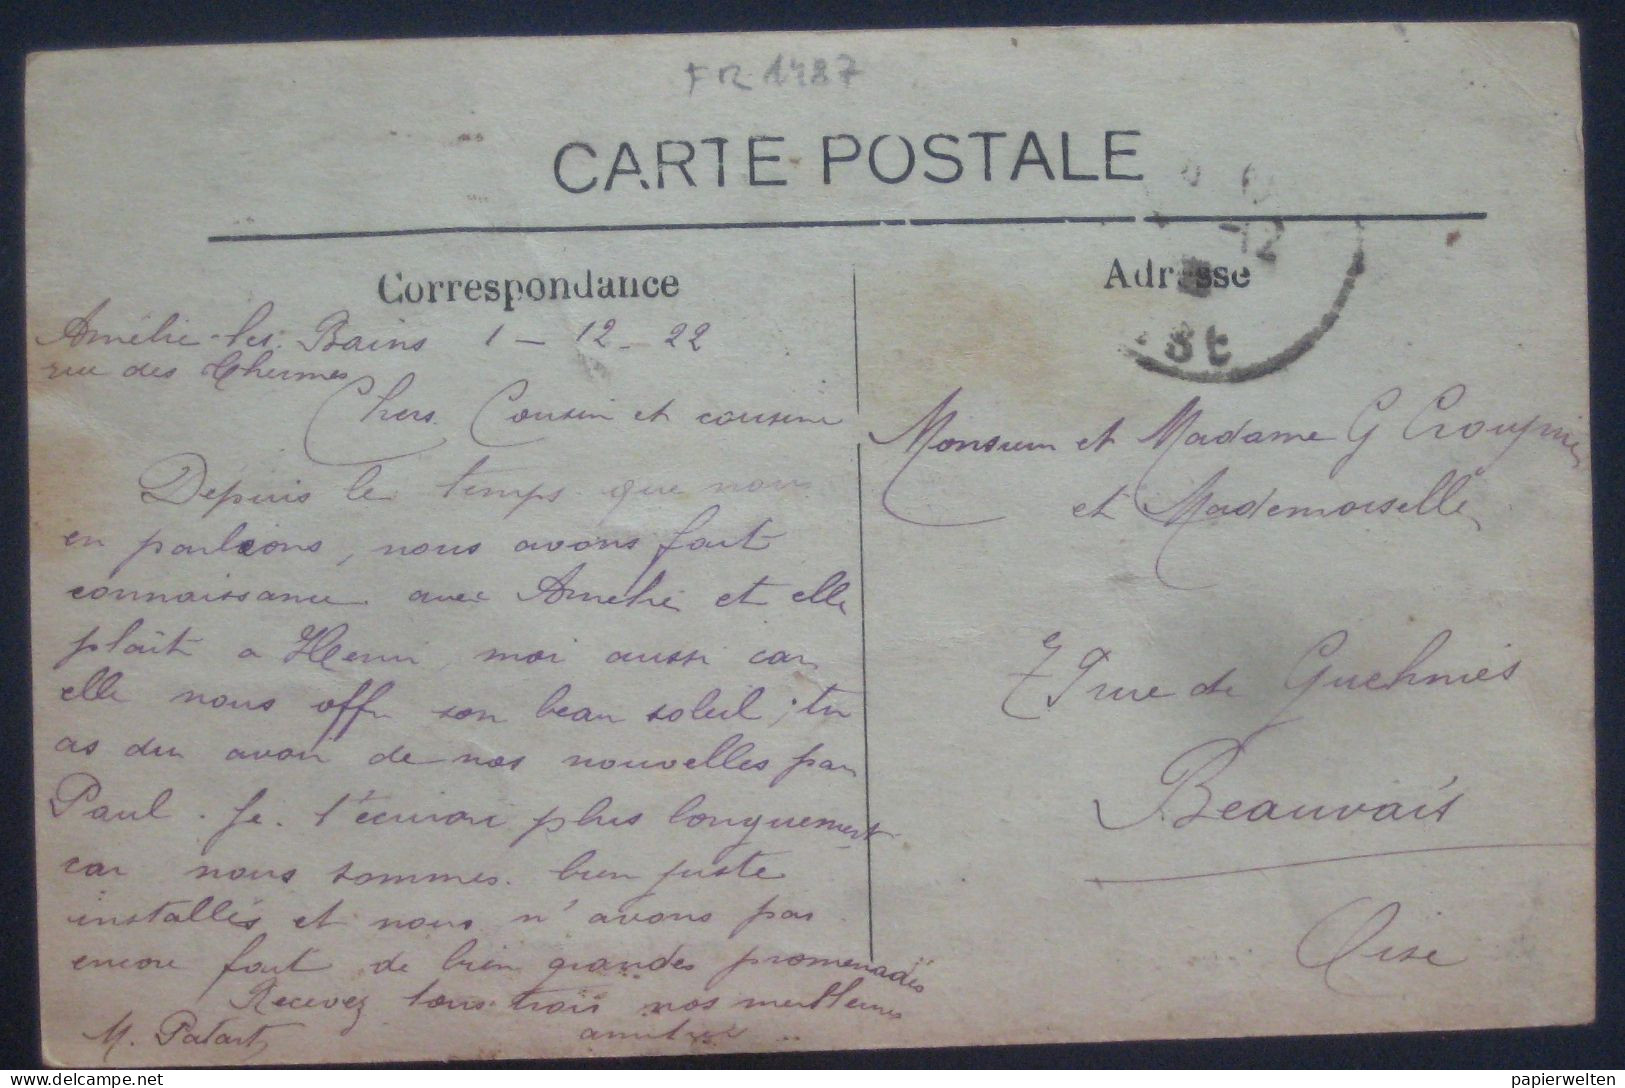 FR 1487
CARTE POSTALE
Correspondance
Adresse
12
st
Amélie-les-Bains 1 - 12 - 22
rue des Thermes
Chers Cousin et cousine
Depuis le temps que nous
en parlions, nous avons fait
connaissance avec Amélie et elle
plaît a Henri, moi aussi car
elle nous offre son beau soleil ; tu
as du avoir de nos nouvelles par
Paul. Je t'écrirai plus longuement
car nous sommes bien juste
installés et nous n'avons pas
encore fait de bien grandes promenades
Recevez tous trois nos meilleures
amitiés
M. Patart
Monsieur et Madame G
et Mademoiselle
79 rue de Guehnies
Beauvais
Oise
delcampe.net
papierwelten